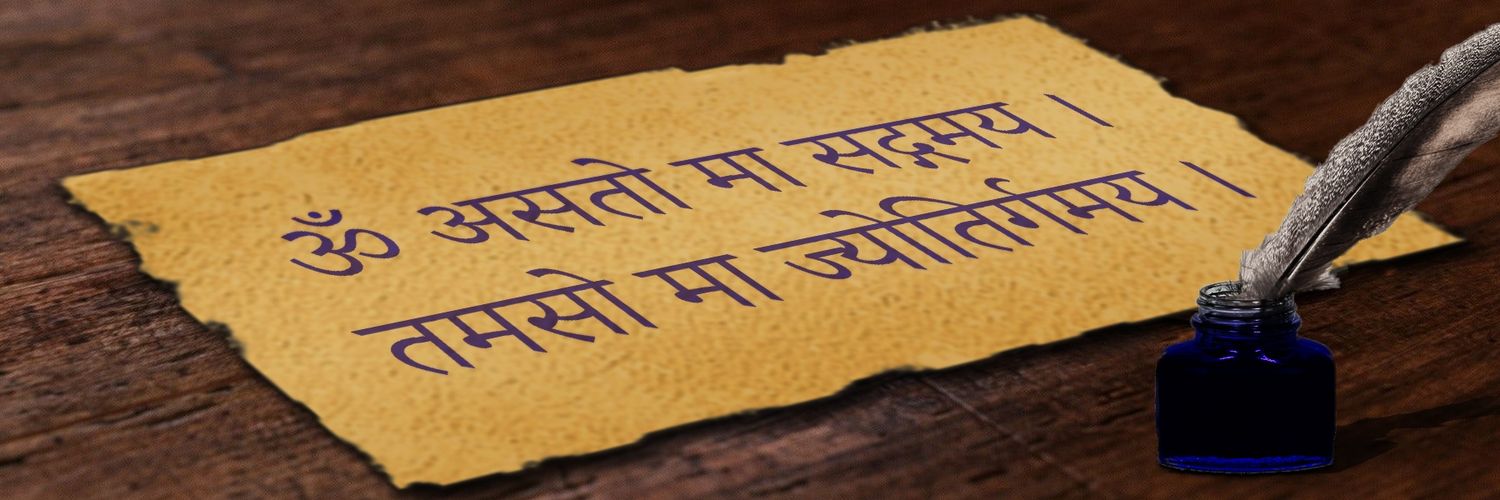 ॐ असतो मा सद्गमय ।
तमसो मा ज्योतिर्गमय ।